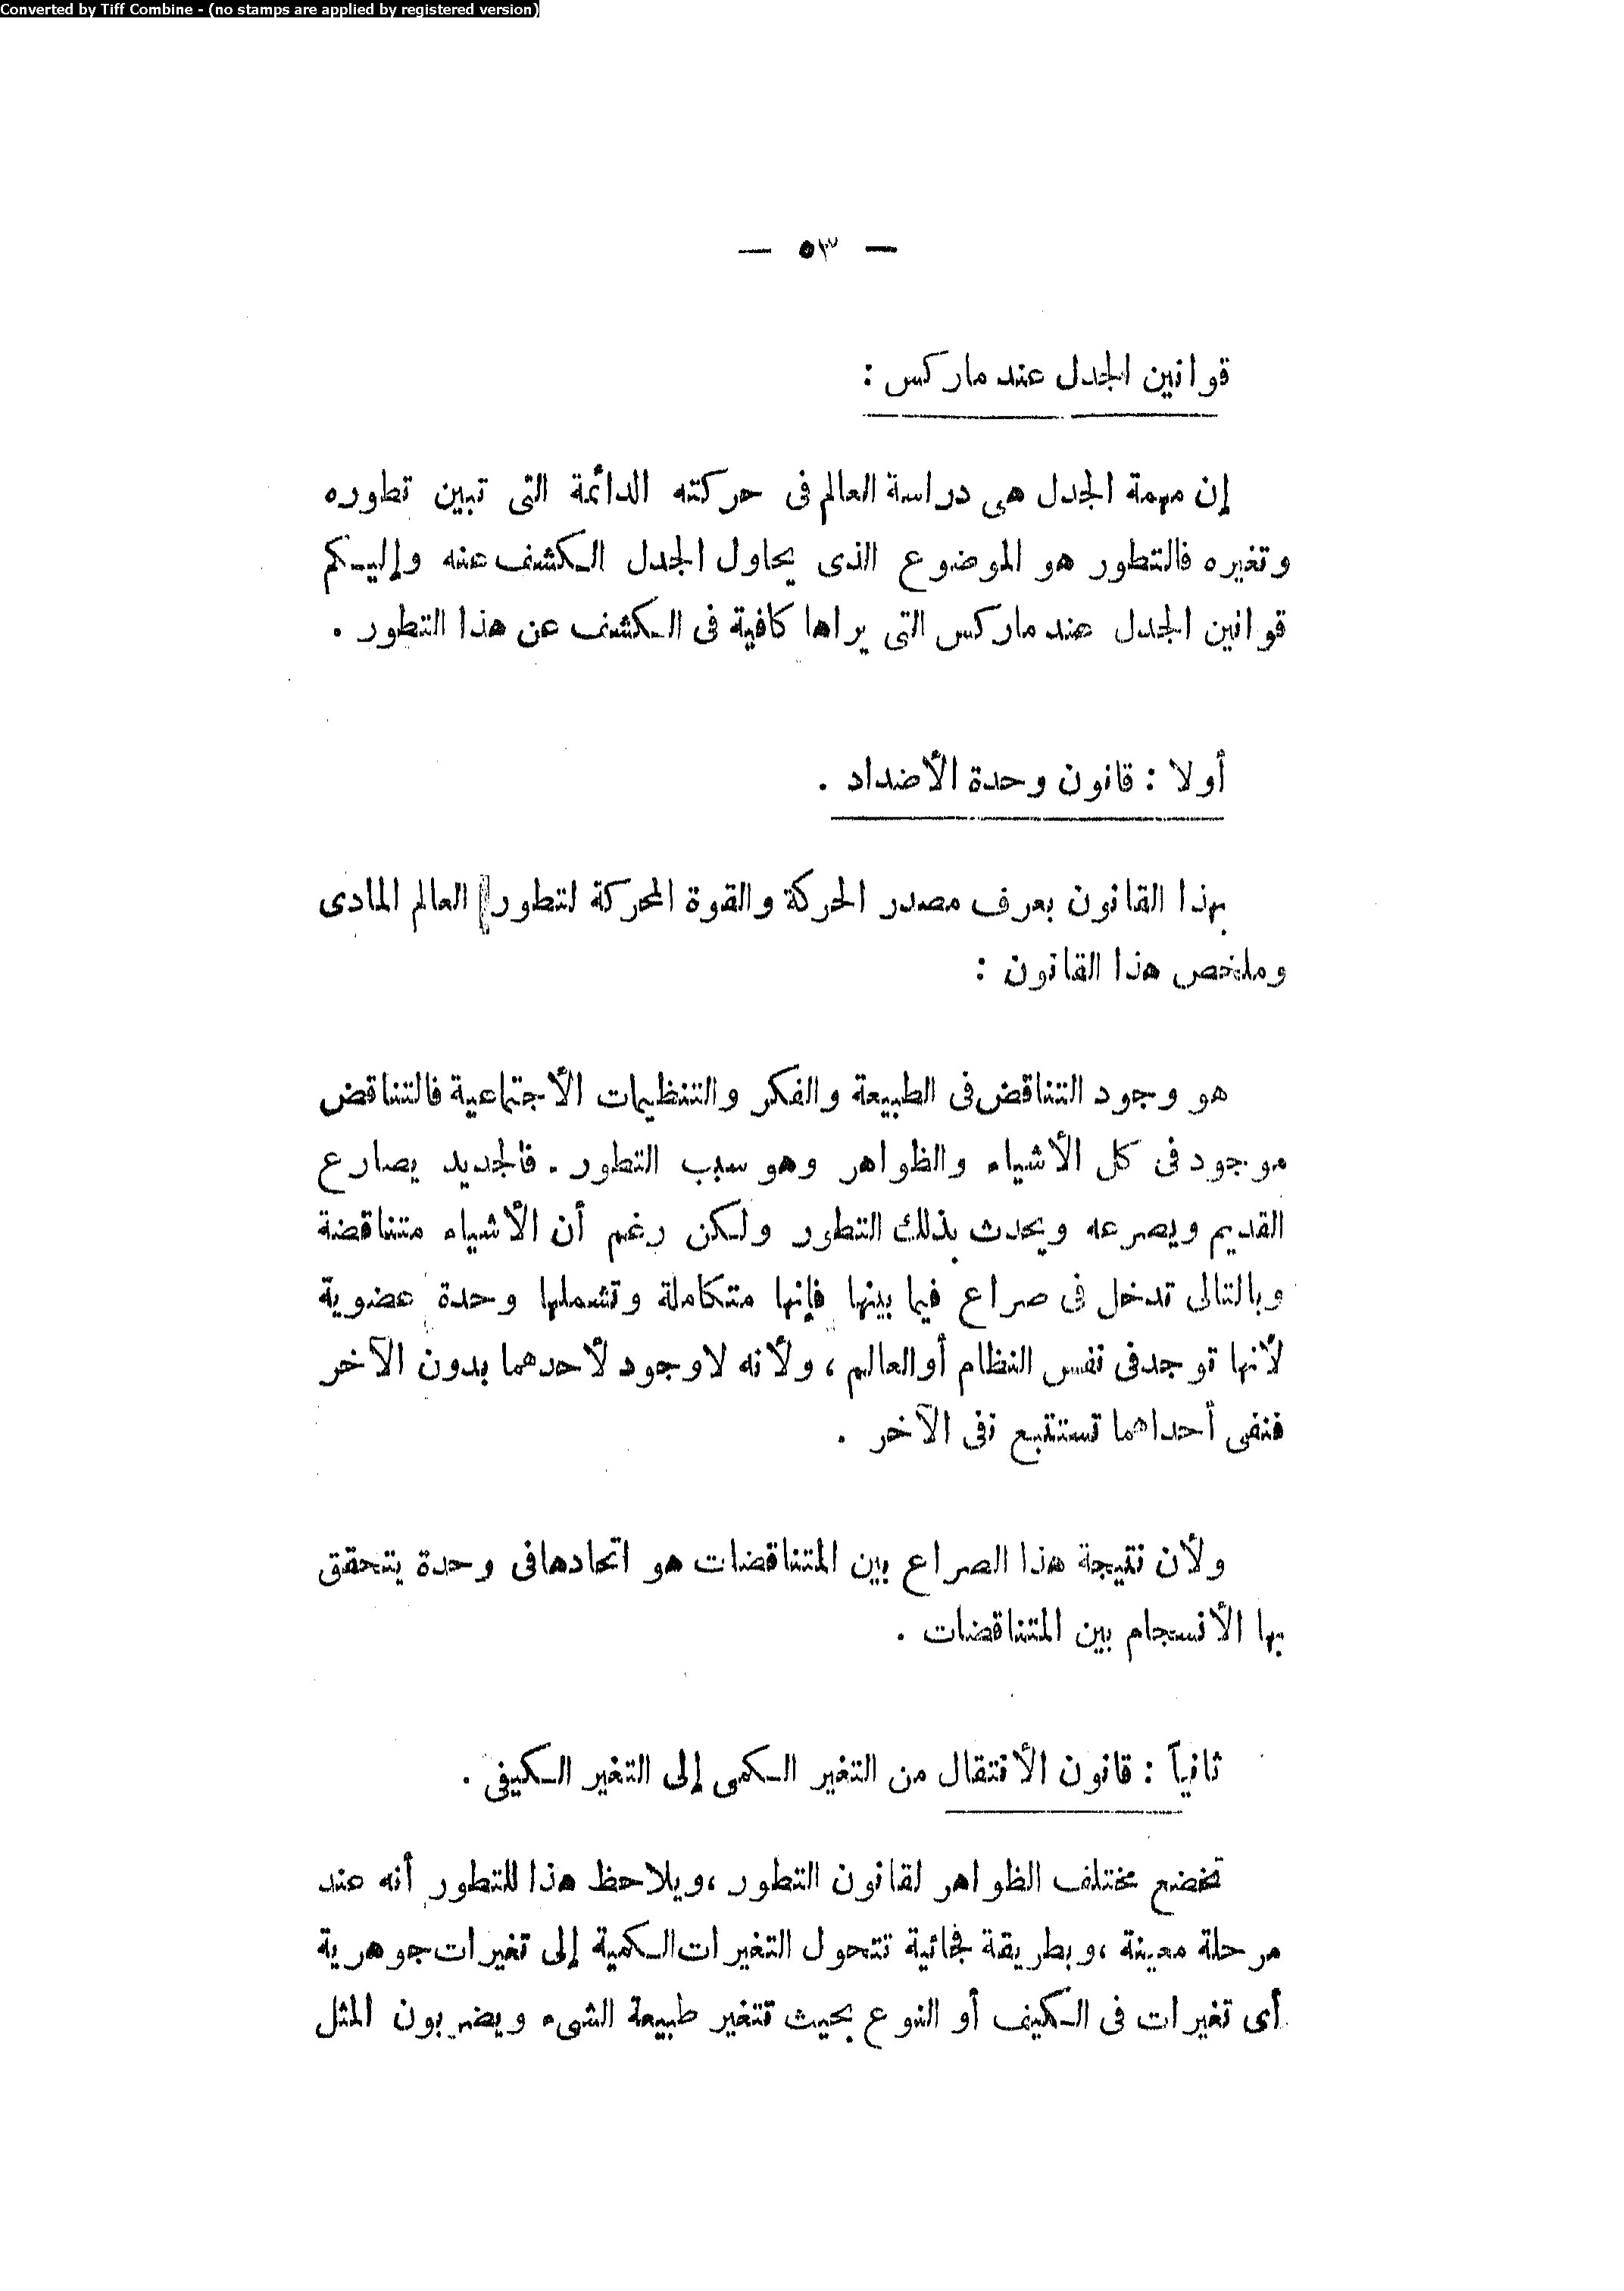 Converted by Tiff Combine - (no stamps are applied by registered version)
— ٥٣ —
قوانين الجدل عند ماركس :
إن مهمة الجدل هى دراسة العالم فى حركته الدائمة التى تبين تطوره
وتغيره فالتطور هو الموضوع الذى يحاول الجدل الكشف عنه وإليكم
قوانين الجدل عند ماركس التى يراها كافية فى الكشف عن هذا التطور .
أولا : قانون وحدة الأضداد .
بهذا القانون بعرف مصدر الحركة والقوة المحركة لتطور العالم المادى
وملخص هذا القانون :
هو وجود التناقض فى الطبيعة والفكر والتنظيمات الأجتماعية فالتناقض
موجود فى كل الأشياء والظواهر وهو سبب التطور . فالجديد يصارع
القديم ويصرعه ويحدث بذلك التطور ولكن رغم أن الأشياء متناقضة
وبالتالى تدخل فى صراع فيما بينها فإنها متكاملة وتشملها وحدة عضوية
لأنها توجد فى نفس النظام أو العالم ، ولأنه لا وجود لأحدهما بدون الآخر
فنفى أحداهما تستتبع نفى الآخر .
ولأن نتيجة هذا الصراع بين المتناقضات هو اتحادها فى وحدة يتحقق
بها الأنسجام بين المتناقضات .
ثانياً : قانون الأنتقال من التغير الكمى إلى التغير الكيفى .
تخضع مختلف الظواهر لقانون التطور ، ويلاحظ هذا للتطور أنه عند
مرحلة معينة ، وبطريقة فجائية تتحول التغيرات الكمية إلى تغيرات جوهرية
أى تغيرات فى الكيف أو النوع بحيث تتغير طبيعة الشىء ويضربون المثل